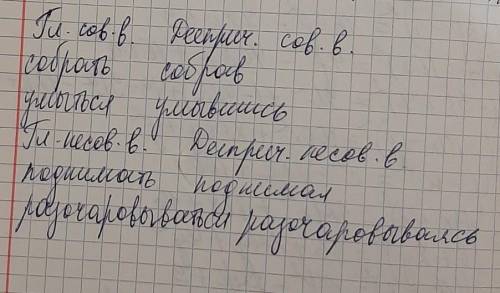 Гл. сов. в. Дееприч. сов. в.
собрать собрав
умыться умывшись
Гл. несов. в. Дееприч. несов. в.
поднимать поднимая
разочаровываться разочаровываясь